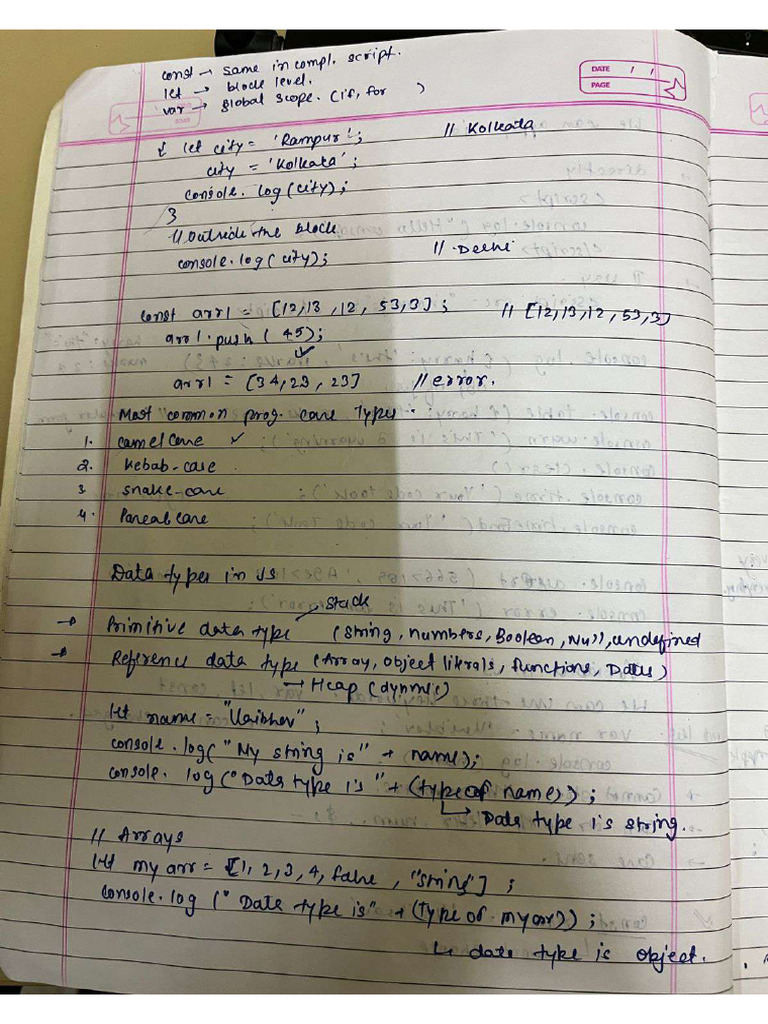 DATE / /
PAGE
const → same in compl. script.
let → block level.
var → global scope. (if, for )
{ let city = 'Rampur'; // Kolkata
city = 'Kolkata';
console.log(city);
}
// Outside the block
console.log(city); // Delhi
const arr1 = [12,13,12, 53,3]; // [12,13,12,53,3]
arr1.push(45);
arr1 = [34,23,23] // error.
Most common prog. case Types.
1. camelCase ✓
2. kebab-case
3 snake-case
4. Pascal case
Data types in JS
stack
→ Primitive data type (string, numbers, Boolean, Null, undefined
→ Reference data type (Array, object litrals, functions, Dates)
↳ Heap (dynmic)
let name = "Vaibhav";
console.log("My string is" + name);
console.log("Data type is" + (typeof name));
↳ Data type is string.
// Arrays
let myarr = [1, 2, 3, 4, false, "string"];
console.log("Data type is" + (type of myarr));
↳ data type is object.